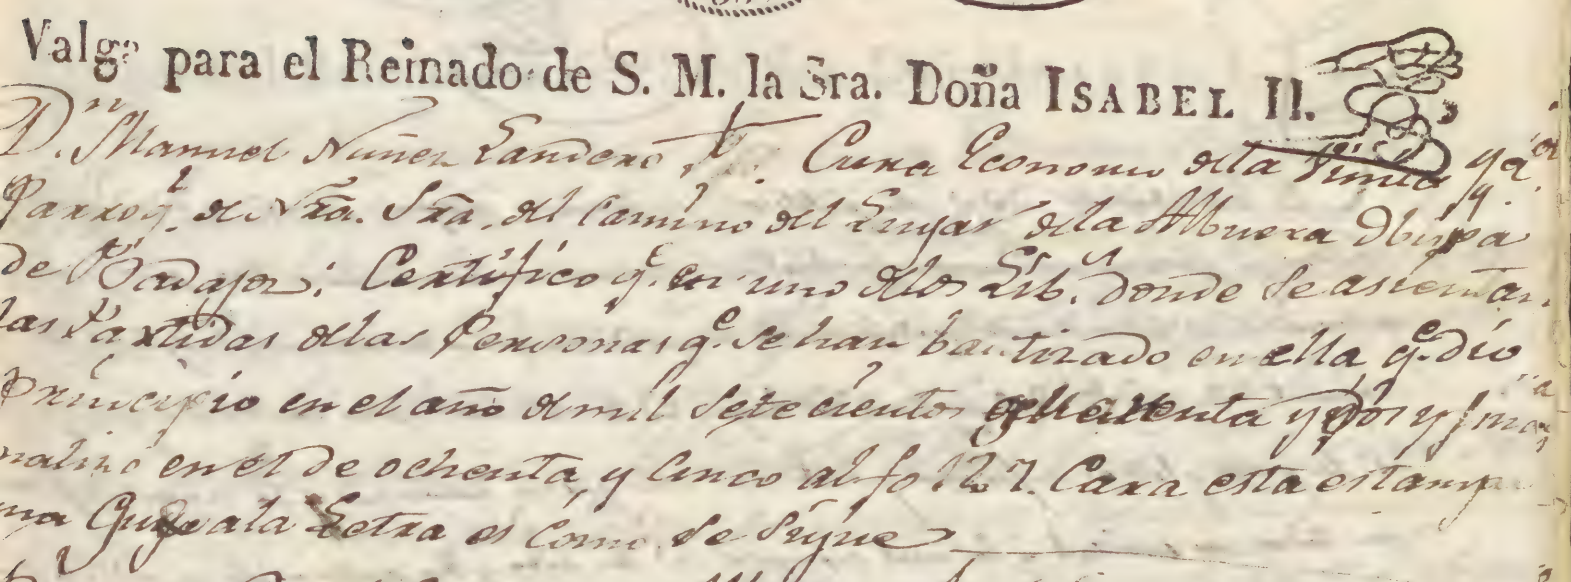 Valga para el Reinado de S. M. la Sra. Doña ISABEL II.
D.n Manuel Nuñez Landero Cura Economo dela Unica y
Parroq.l de Nra. Sra. del Camino del Lugar dela Albuera Obispa
de Badajoz: Certifico q.e en uno delos Lib.s donde se asientan
las Partidas delas Personas q.e se han bautizado en ella q.e dio
principio en el año de mil setecientos y dos y
en el de ochenta y cinco al fo 127. Cara esta estamp
una Cuya ala Letra es como se sigue